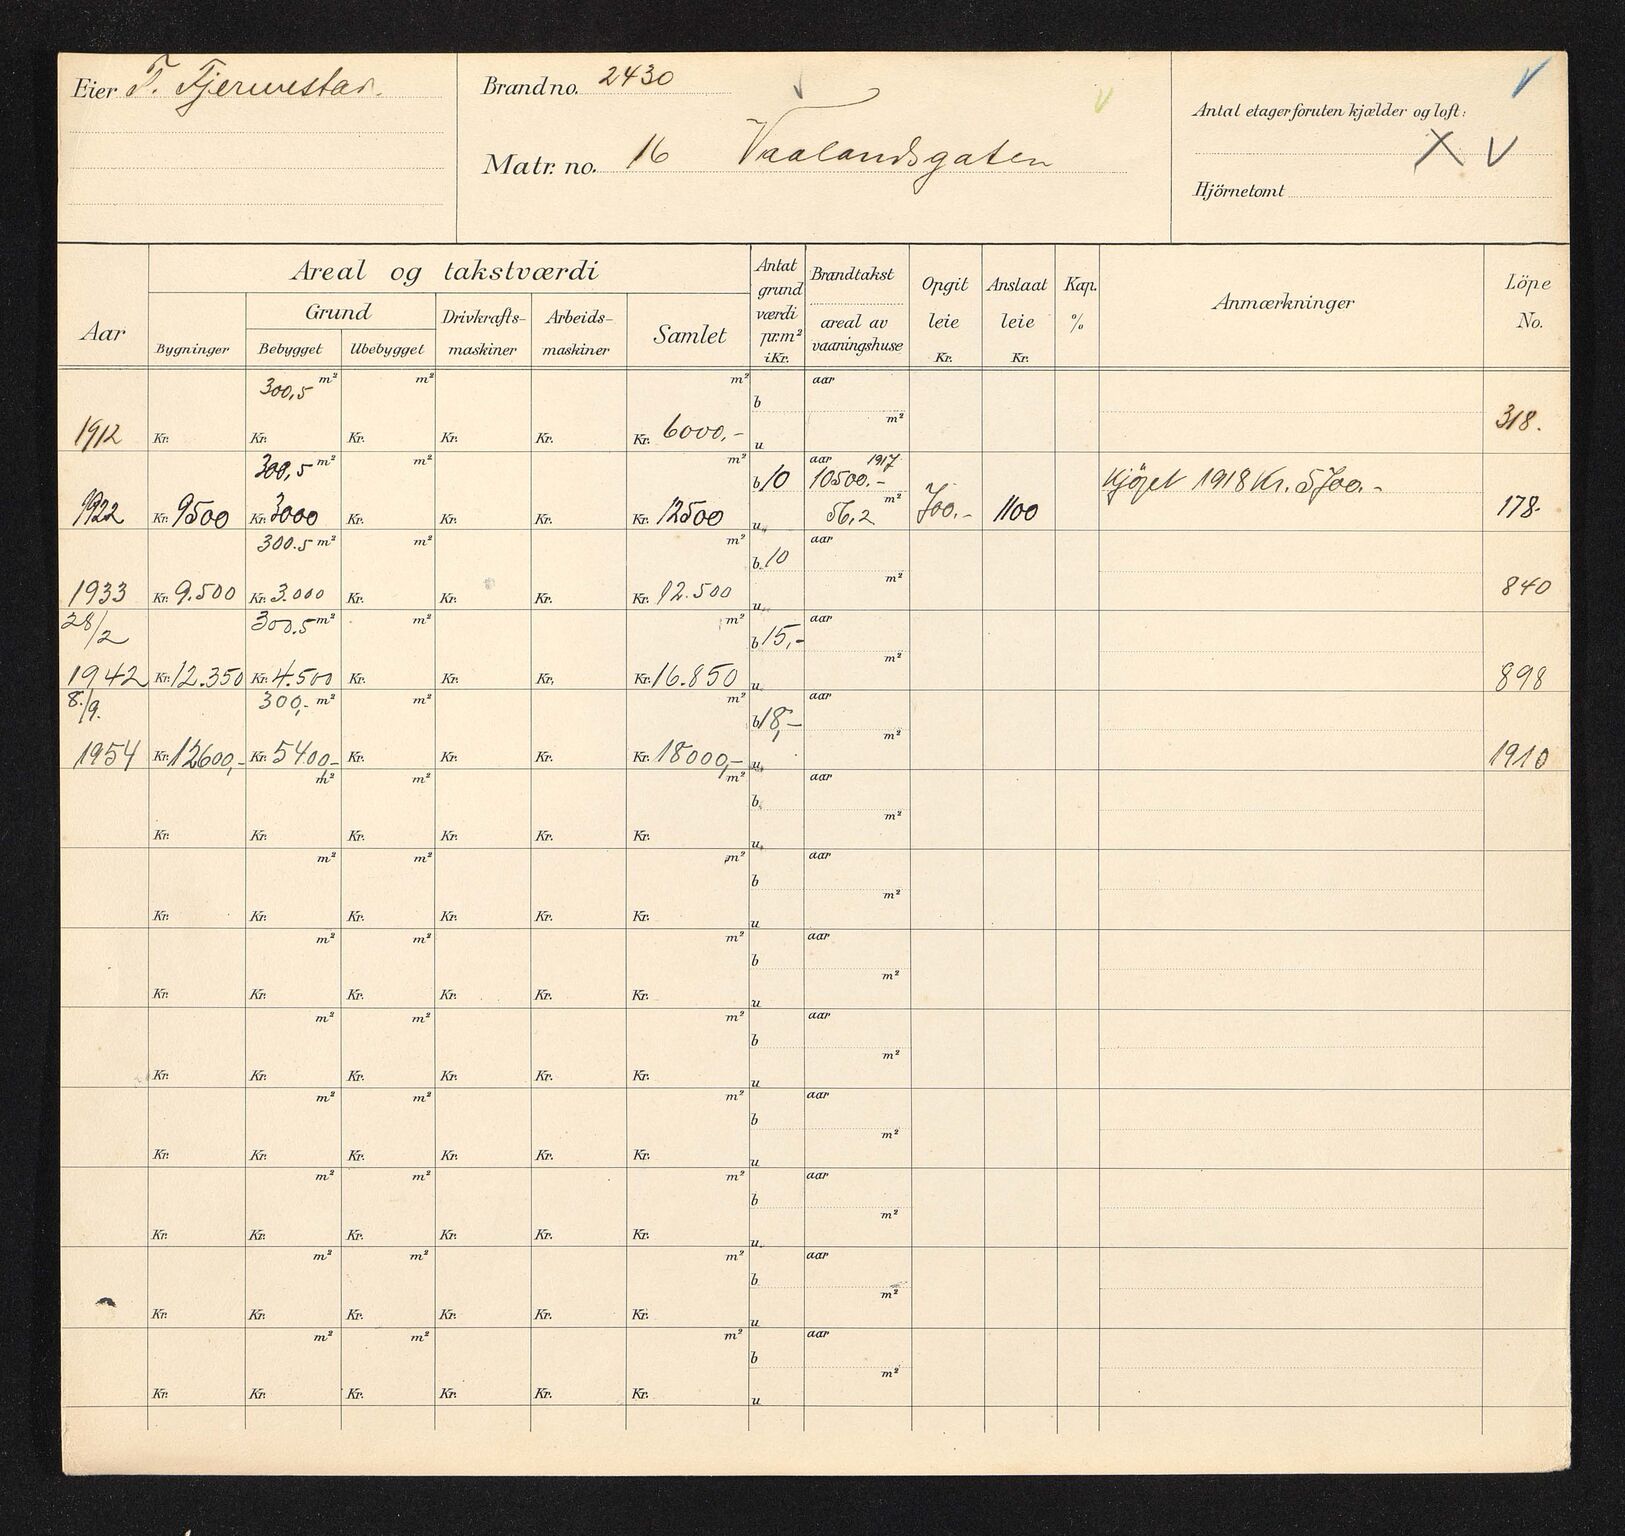 Eier T. Tjermestad.
Brand no. 2430
Matr. no. 16 Vaalandsgaten
Antal etager foruten kjælder og loft:
X V
Hjörnetomt
Aar
Areal og takstværdi
Bygninger
Grund
Bebygget Ubebygget
Drivkrafts-
maskiner
Arbeids-
maskiner
Samlet
Antat
grund
værdi
pr. m²
i Kr.
Brandtakst
areal av
vaaningshuse
Opgit
leie
Kr.
Anslaat
leie
Kr.
Kap.
%
Anmærkninger
Löpe
No.
300,5 m² m² m² b aar
m²
1912 Kr. Kr. Kr. Kr. Kr. Kr. 6000,- u 318.
300,5 m² m² m² b 10 aar 1917
10500.- Kjöpet 1918 Kr. 5700.-
m²
1922 Kr. 9500 Kr. 3000 Kr. Kr. Kr. Kr. 12500 u. 56,2 700.- 1100 178.
300.5 m² m² m² b. 10 aar
m²
1933 Kr. 9.500 Kr. 3.000 Kr. Kr. Kr. Kr. 12.500 u. 840
28/2 300.5 m² m² m² b 15,- aar
m²
1942 Kr. 12.350 Kr. 4.500 Kr. Kr. Kr. Kr. 16.850 u. 898
8./9. 300,- m² m² m² b 18,- aar
m²
1954 Kr. 12600,- Kr. 5400- Kr. Kr. Kr. Kr. 18000,- u. 1910
m² m² m² aar
b.
m²
Kr. Kr. Kr. Kr. Kr. Kr. u.
m² m² m² aar
b
m²
Kr. Kr. Kr. Kr. Kr. Kr. u
m² m² m² aar
b
m²
Kr. Kr. Kr. Kr. Kr. Kr. u
m² m² m² aar
b
m²
Kr. Kr. Kr. Kr. Kr. Kr. u
m² m² m² aar
b
m²
Kr. Kr. Kr. Kr. Kr. Kr. u
m² m² m² aar
b
m²
Kr. Kr. Kr. Kr. Kr. Kr. u.
m² m² m² aar
b
m²
Kr. Kr. Kr. Kr. Kr. Kr. u
m² m² m² aar
b
m²
Kr. Kr. Kr. Kr. Kr. Kr. u